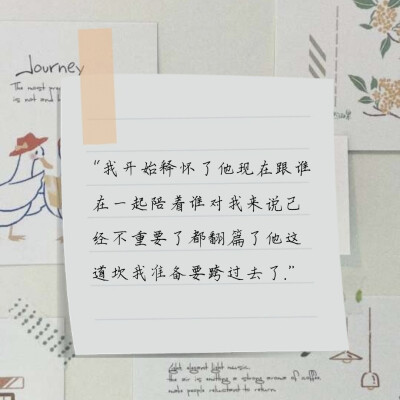 Journey
The most
is not and
“我开始释怀了他现在跟谁
在一起陪着谁对我来说已
经不重要了都翻篇了他这
道坎我准备要跨过去了.”
light elegant light music
the air is emitting a strong aroma of coffee
make people reluctant to return